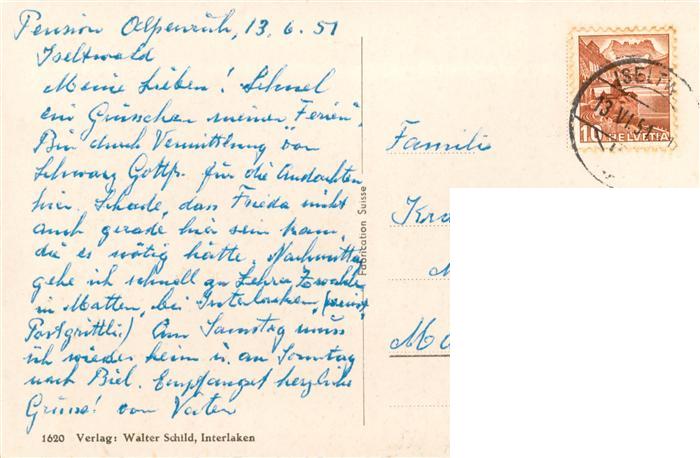 Pension Alpenruh, 13. 6. 51
Iseltwald
Meine Lieben! Schnel
ein Grüsschen meiner Ferien.
Bin durch Vermittlung von
Schwarz Gottfr. für die Andachten
hier. Schade, dass Frieda nicht
auch gerade hier sein kann,
die es nötig hätte. Nachmittag
gehe ich schnell zu Lehrer
in Matten, bei Interlaken,
Postgrittli.) Am Samstag muss
ich wieder heim u. an Sonntag
nach Biel. Empfanget herzliche
Grüsse! von Vater
1620 Verlag: Walter Schild, Interlaken
Fabrication Suisse
Familie
Kra
M
Ma
10 HELVETIA
ISELTW
13.VI.51